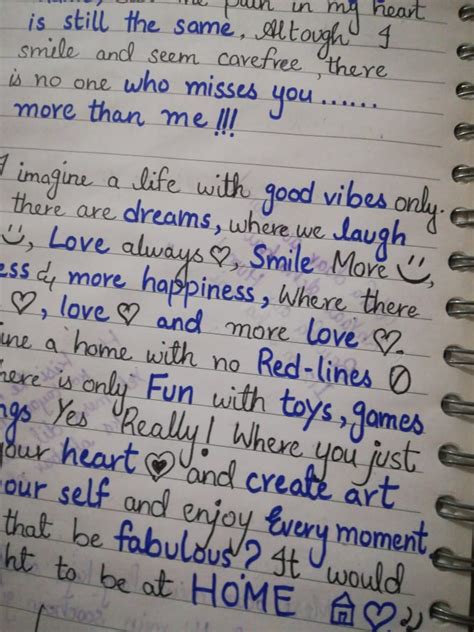 the pain in my heart
is still the same, Altough I
smile and seem carefree, there
is no one who misses you ......
more than me!!!
I imagine a life with good vibes only.
there are dreams, where we laugh
☺, Love always ♡, Smile More ☺,
ess & more happiness, Where there
♡, love ♡ and more love ♡.
ine a home with no Red-lines
here is only Fun with toys, games
ngs Yes Really! Where you just
our heart ♡ and create art
our self and enjoy Every moment
that be fabulous? It would
ht to be at HOME